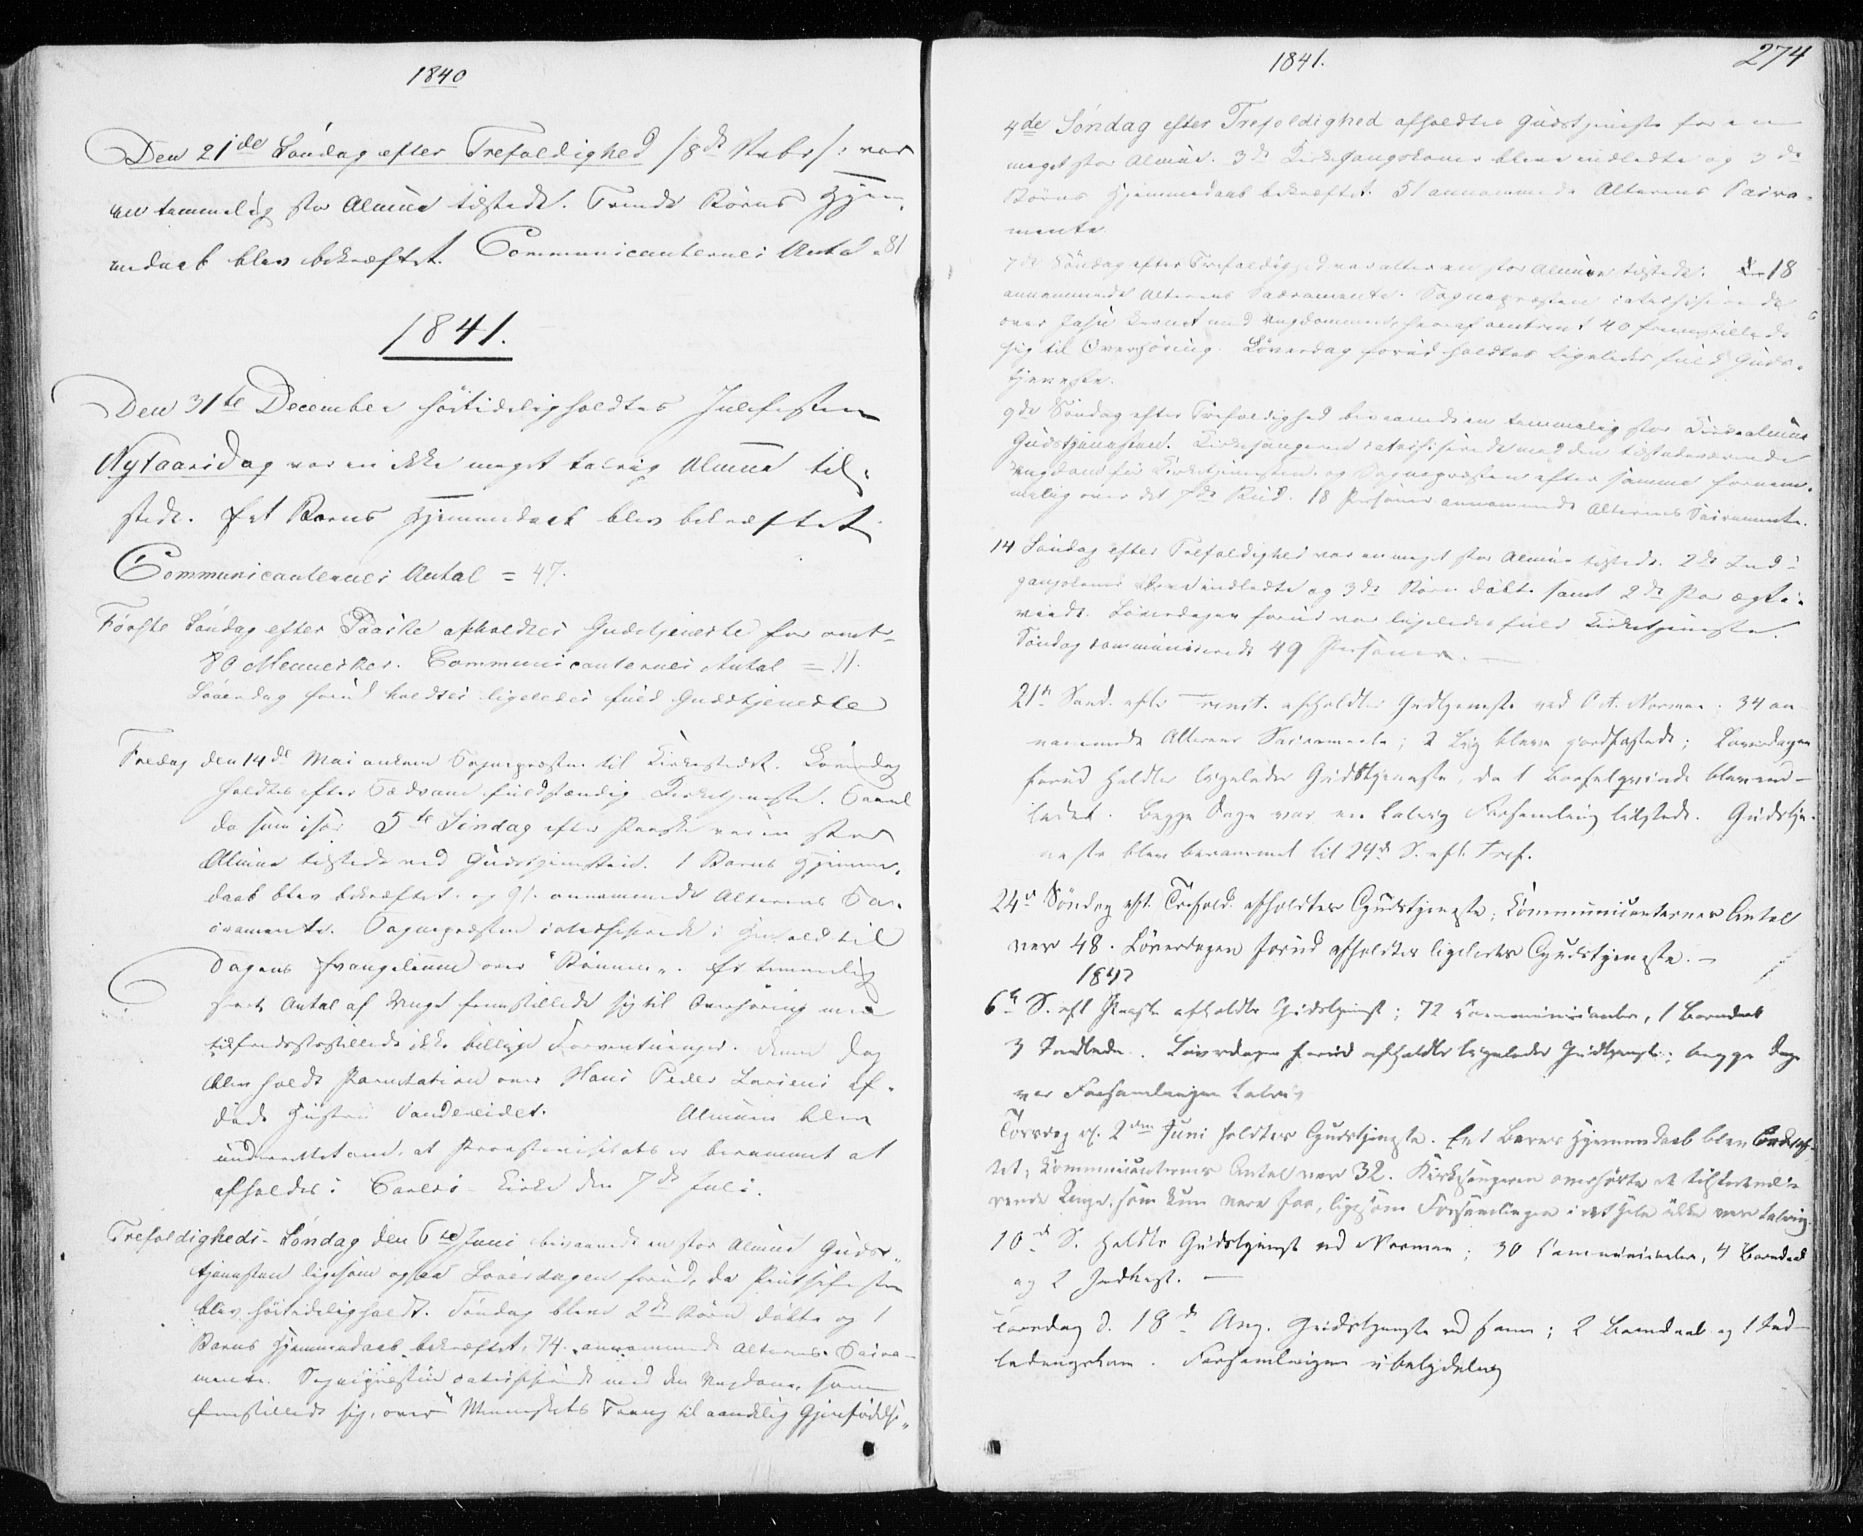 1840
Den 21de Søndag efter Trefoldighed /: 8de Nvbr :/ var
en temmelig stor Almue tilstede. Trende Børns Hjem-
medaab blev bekræftet. Communicanternes Antal = 81
1841.
Den 31te December høitideligholdtes Julefesten
Nytaarsdag var en ikke meget talrig Almue til-
stede. Et Barns Hjemmedaab blev bekræftet
Communicanternes Antal = 47.
Første Søndag efter Paaske afholdtes Gudstjeneste for omtr
80 Mennesker. Communicanternes Antal = 11.
Løverdag forud holdtes ligeledes fuld Gudstjeneste
Fredag den 14de Mai ankom Sognepræsten til Kirkestedet. Løverdag
holdtes efter Sædvane fuldstændig Kirketjeneste. Saavel
da som især 5te Søndag efter Paaske var en stor
Almue tilstede ved Gudstjenesten. 1 Barns Hjemme-
daab blev bekræftet og 91 annammede Alterens Sa-
cramente. Sognepræsten catechiserede i Henhold til
Dagens Evangelium over "Bønnen". Et temmelig
stort Antal af Unge fremstillede sig til Overhøring men
tilfredsstillede ikke billige Forventninger. Denne Dag
blev holdt Parentation over Hans Peder Larsens af-
døde Hustru Vandeidet. Almuen blev
underrettet om, at Provstevisitats er berammet at
afholdes i Carlsø Kirke den 7de Juli.
Trefoldigheds-Søndag den 6te Juni bivaanede en stor Almue Guds-
tjenesten ligesom ogsaa Løverdagen forud, da Pintsefesten
blev høitideligholdt. Søndag bleve 2de Børn døbte og 1
Barns Hjemmedaab bekræftet, 74 annammede Alterens Sacra-
mente. Sognepræsten catechiserede med den Ungdom, som
fremstillede sig, over "Menneskets Trang til aandelig Gjenfødelse"
1841.
274
4de Søndag efter Trefoldighed afholdtes Gudstjeneste for en
meget stor Almue. 3de Kirkegangskoner bleve indledte og 3de
Børns Hjemmedaab bekræftet. 51 annammede Alterens Sacra-
mente.
7de Søndag efter Trefoldighed var atter en stor Almue tilstede. 18
annammede Alterens Sacramente. Sognepræsten catechiserede
over med Ungdommen, hvoraf omtrent 40 fremstillede
sig til Overhøring. Løverdag forud holdtes ligeledes fuld Guds-
tjeneste.
9de Søndag efter Trefoldighed bivaanede en temmelig stor Kirkealmue
Gudstjenesten. Kirkesangeren catechiserede med den tilstedeværende
Ungdom før Kirketjenesten og Sognepræsten efter samme fornem-
melig over det 7de Bud. 18 Personer annammede Alterens Sacramente.
14 Søndag efter Trefoldighed var en meget stor Almue tilstede. 2de Ind-
gangskoner bleve indledte og 3de Børn døbte samt 2de Par ægte-
viede. Løverdagen forud var ligeledes fuld Kirketjeneste.
Søndag communicerede 49 Personer.
21de Sønd. efter Trinit. afholdtes Gudstjeneste ved Cst. Norman; 34 an-
nammede Alterens Sacramente; 2 Lig bleve jordfæstede; Løverdagen
forud holdtes ligeledes Gudstjeneste, da 1 Barselqvinde blev ind-
ledet. Begge Dage var en talrig Forsamling tilstede. Gudstje-
neste blev berammet til 24de S. eft. Tref.
24de Søndag eft. Trefold. afholdtes Gudstjeneste; Communicanternes Antal
var 48. Løverdagen forud afholdtes ligeledes Gudstjeneste. –
1842
6te S. eft Paaske afholdtes Gudstjeneste; 72 Communicanter, 1 Barnedaab
3 Indledn. Løverdagen forud afholdtes ligeledes Gudstjeneste; begge Dage
var Forsamlingen talrig
Torsdag d. 2den Juni holdtes Gudstjeneste. Et Barns Hjemmedaab blev bekræf-
tet; Communicanternes Antal var 32. Kirkesangeren overhørte de tilstedevæ-
rende Unge, som kun vare faa, ligesom Forsamlingen i det Hele ikke var talrig.
10de S. holdtes Gudstjeneste ved Norman; 30 Communicanter, 4 Barnedaab
og 2 Indledn. –
Torsdag d. 18de Aug. Gudstjeneste ved samme; 2 Barnedaab og 1 Ind-
ledningskone. Forsamlingen ubetydelig